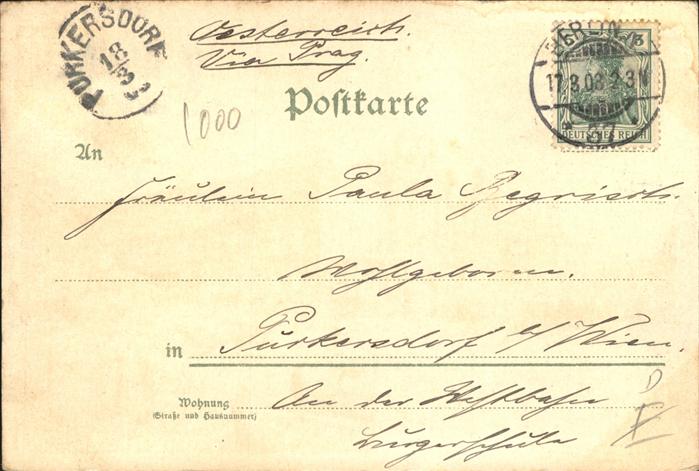 PURKERSDORF
18/3
Oesterreich.
Via Prag.
BERLIN
17.3.03
5
DEUTSCHES REICH
Postkarte
1000
An
Fräulein Paula
Wohlgeboren.
in Purkersdorf b/ Wien.
Wohnung
(Straße und Hausnummer)
An der Westbahn
Burgerschule